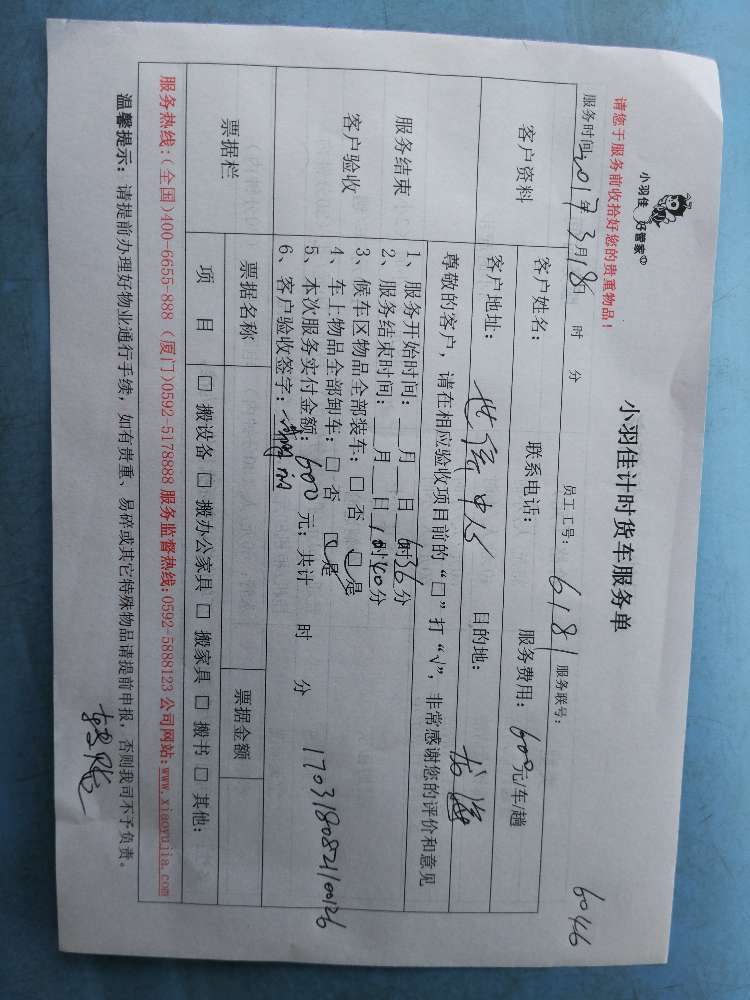 小羽佳 好管家
小羽佳计时货车服务单
请您于服务前收拾好您的贵重物品!
服务时间:2017年3月18日 时 分 员工工号:6181 服务联号: 6046
客户资料 客户姓名: 联系电话: 服务费用:600元/车/趟
客户地址: 世贸中心 目的地: 龙海
尊敬的客户,请在相应验收项目前的“□”打“√”,非常感谢您的评价和意见
服务结束
客户验收
1、服务开始时间: 月 日 时36分
2、服务结束时间: 月 日 时40分
3、候车区物品全部装车:□ 否 □ 是
4、车上物品全部卸车:□ 否 □ 是
5、本次服务实付金额:600元;共计 时 分
6、客户验收签字:
17031808241100126
票据栏 票据名称 票据金额
项 目 □ 搬设备 □ 搬办公家具 □ 搬家具 □ 搬书 □ 其他:
服务热线:(全国)400-6655-888 (厦门)0592-5178888 服务监督热线:0592-5888123 公司网站:www.xiaoyujia.com
温馨提示:请提前办理好物业通行手续,如有贵重、易碎或其它特殊物品请提前申报,否则我司不予负责。